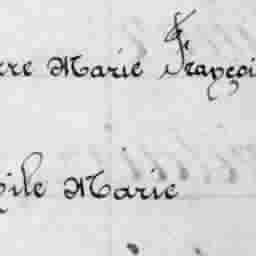 rre Marie Françoi
ile Marie